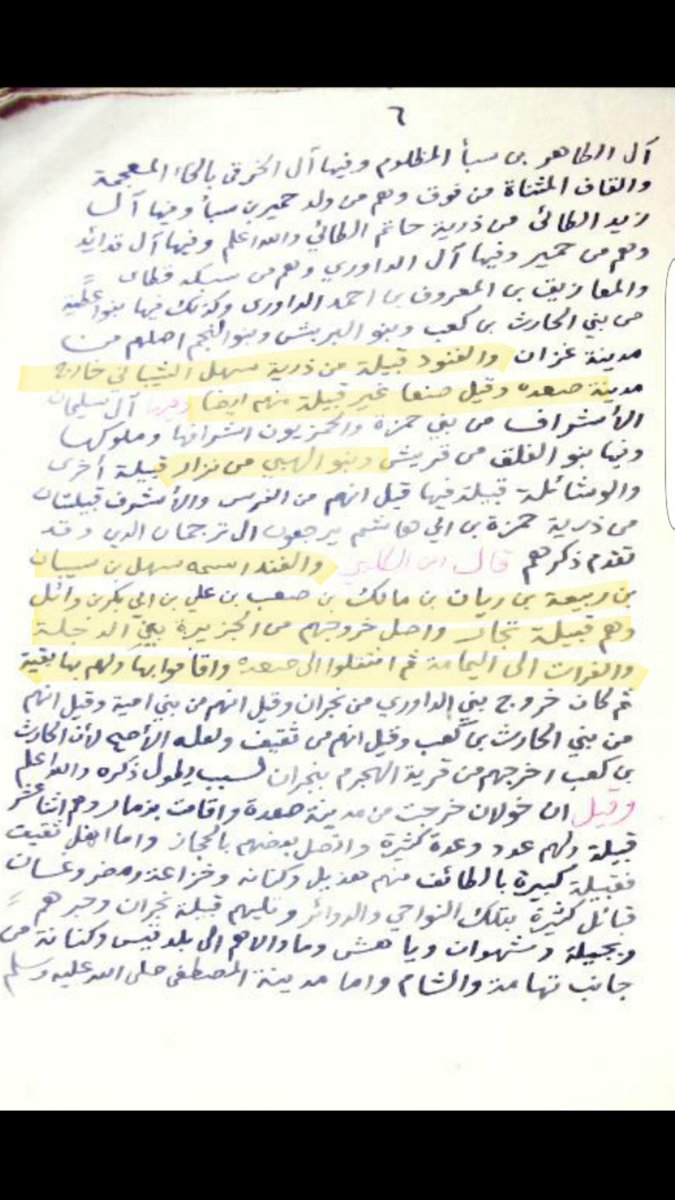 ٦
آل الطاهر بن سبأ المظلوم وفيها آل الخرقي بالخاء المعجمة
والقاف المثناة من فوق وهم من ولد حمير بن سبأ وفيها آل
زيد الطائي من ذرية حاتم الطائي والله اعلم وفيها آل قدايد
وهم من حمير وفيها آل الداوري وهم من
والمعازيف بن المعروف بن احمد الداوري وكذلك فيها بنوا عطية
من بني الحارث بن كعب وبنو البريش وبنو النجم اصلهم من
مدينة عزان والفنود قبيلة من ذرية سهل الشيباني خارج
مدينة صعده وقيل صنعا غير قبيلة منهم ايضا وفيها آل سليمان
الأشراف من بني حمزة والحمزيون اشرافها وملوكها
وفيها بنو الغلق من قريش وبنو الهبي من نزار قبيلة أخرى
والوشائلة قبيلة فيها قيل انهم من الفرس والأشرف قبيلتان
من ذرية حمزة بن ابي هاشم يرجعون الى ترجمان الدين وقد
تقدم ذكرهم قال ابن الكلبي والفند اسمه سهل بن سيبان
بن ربيعة بن ريان بن مالك بن صعب بن علي بن ابي بكر بن وائل
وهم قبيلة تجار واصل خروجهم من الجزيرة بين الدجلة
والفرات الى اليمامة ثم انتقلوا الى صعده واقاموا بها ولهم بها بقية
ثم كان خروج بني الداوري من نجران وقيل انهم من بني امية وقيل انهم
من بني الحارث بن كعب وقيل انهم من ثقيف ولعله الأصح لأن الحارث
بن كعب اخرجهم من قرية الهجر من نجران لسبب يطول ذكره والله اعلم
وقيل ان خولان خرجت من مدينة صعدة واقامت بذمار وهم اثنا عشر
قبيلة ولهم عدد وعدة كثيرة واتصل بعضهم بالحجاز واما اهل ثقيف
فقبيلة كبيرة بالطائف منهم هذيل وكنانه وخزاعة ومضر وغسان
قبائل كثيرة بتلك النواحي والدوائر وتليهم قبيلة نجران وجرهم
وبجيلة وشهران وياهش وما والاهم الى بلد قيس وكنانة من
جانب تهامة والشام واما مدينة المصطفى صلى الله عليه وسلم